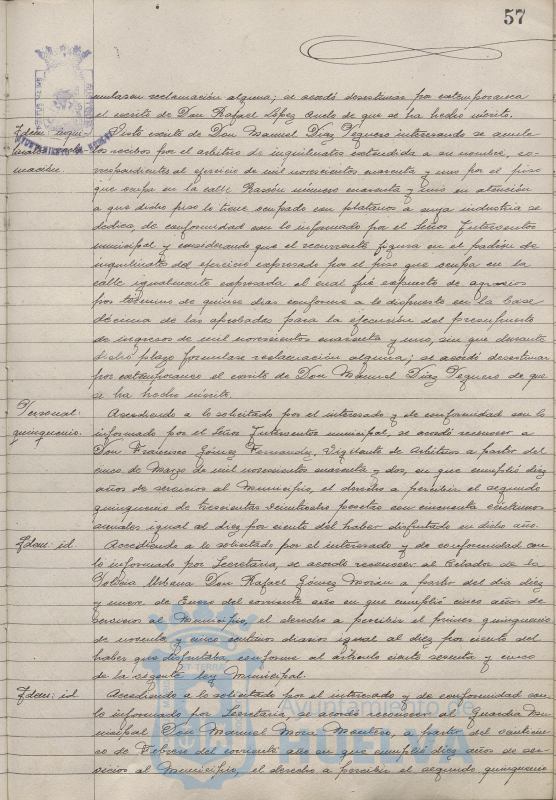 57
mulasen reclamación alguna; se acordó desestimar por extemporanea
el escrito de Don Rafael López de que se ha hecho mérito.
Idem: inqui-
linatos
mación.
Visto escrito de Don Manuel Díaz Vequero interesando se anule
los recibos por el arbitrio de inquilinatos extendida a su nombre, co-
rrespondientes al ejercicio de mil novecientos cuarenta y uno por el piso
que ocupa en la calle Rascón número cuarenta y uno en atención
a que dicho piso lo tiene ocupado con plátanos a cuya industria se
dedica, de conformidad con lo informado por el Señor Interventor
municipal y considerando que el recurrente figura en el padrón de
inquilinatos del ejercicio expresado por el piso que ocupa en la
calle igualmente expresada el cual fué expuesto de agravios
por término de quince dias conforme a lo dispuesto en la Base
décima de las aprobadas para la ejecución del presupuesto
de ingresos de mil novecientos cuarenta y uno, sin que durante
dicho plazo formulase reclamación alguna; se acordó desestimar
por extemporaneo el escrito de Don Manuel Díaz Vequero de que
se ha hecho mérito.
Personal:
quinquenio.
Accediendo a lo solicitado por el interesado y de conformidad con lo
informado por el Señor Interventor municipal, se acordó reconocer a
Don Francisco Gómez Fernandez, Vigilante de Arbitrios a partir del
cinco de Marzo de mil novecientos cuarenta y dos, en que cumplió diez
años de servicios al Municipio, el derecho a percibir el segundo
quinquenio de trescientas veinticuatro pesetas con cincuenta céntimos
anuales igual al diez por ciento del haber disfrutado en dicho año.
Idem: id.
Accediendo a lo solicitado por el interesado y de conformidad con
lo informado por Secretaría, se acordó reconocer al Celador de la
Policía Urbana Don Rafael Gómez Morán a partir del día diez
y nueve de Enero del corriente año en que cumplió cinco años de
servicios al Municipio, el derecho a percibir el primer quinquenio
de noventa y cinco céntimos diarios igual al diez por ciento del
haber que disfrutaba, conforme al artículo ciento sesenta y cinco
de la vigente ley Municipal.
Idem: id
Accediendo a lo solicitado por el interesado y de conformidad con
lo informado por Secretaría, se acordó reconocer al Guardia Mu-
nicipal Don Manuel Mora Montero, a partir del veintiun-
co de Febrero del corriente año en que cumplió diez años de ser-
vicios al Municipio, el derecho a percibir el segundo quinquenio
Ayuntamiento de
HUELVA